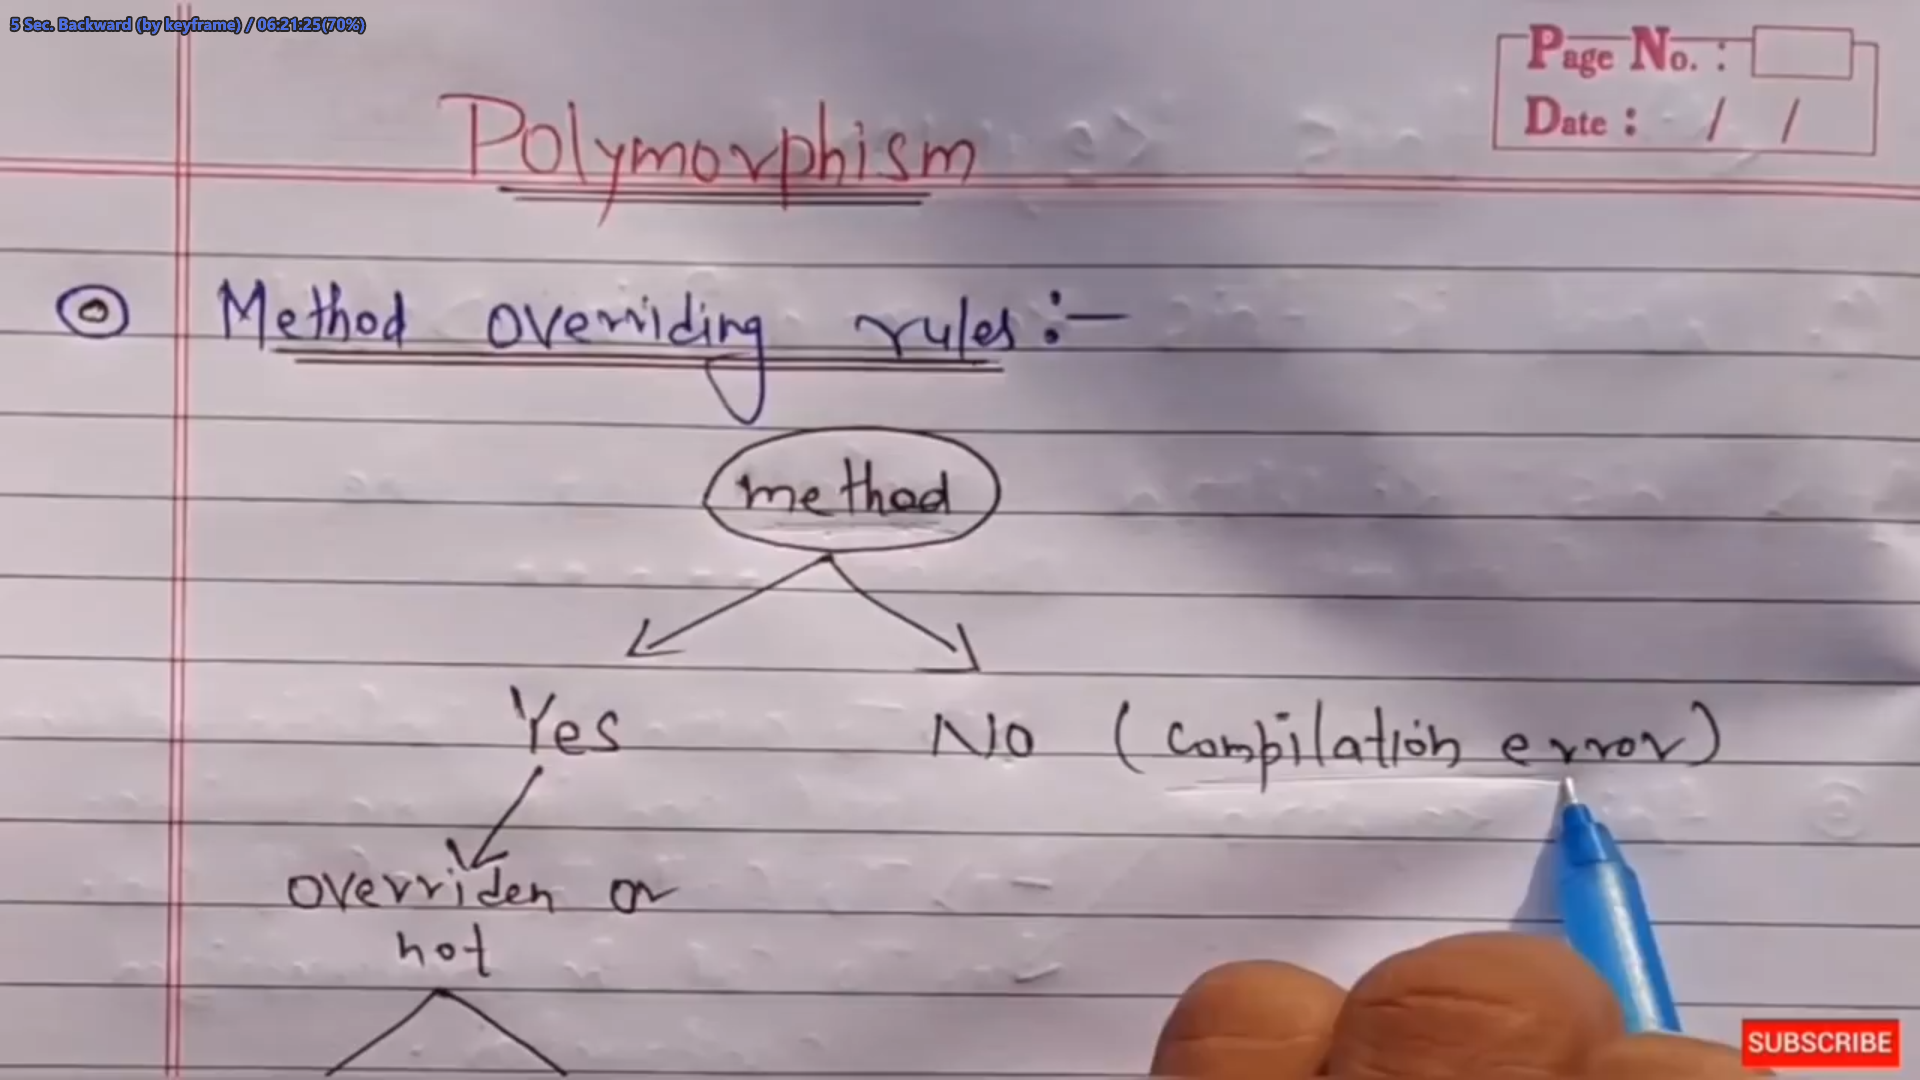 5 Sec. Backward (by keyframe) / 06:21:25(70%)
Page No. :
Date : / /
Polymorphism
Method overriding rules :-
method
Yes No (compilation error)
overriden or
not
SUBSCRIBE